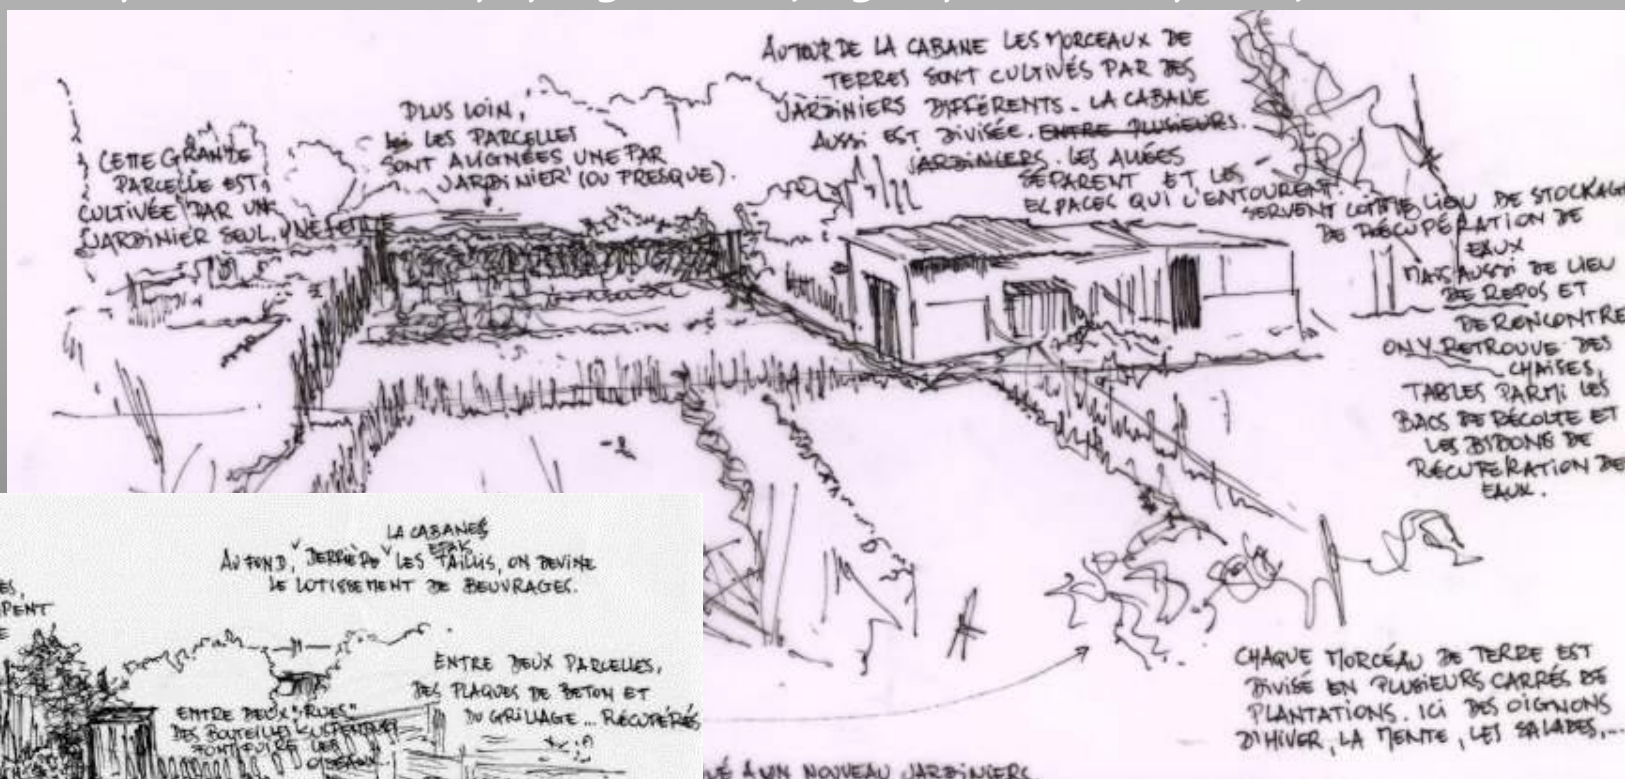 CETTE GRANDE
PARCELLE EST
CULTIVÉE PAR UN
JARDINIER SEUL.
PLUS LOIN,
LES PARCELLES
SONT ALIGNÉES UNE PAR
JARDINIER (OU PRESQUE).
AUTOUR DE LA CABANE LES MORCEAUX DE
TERRES SONT CULTIVÉS PAR DES
JARDINIERS DIFFÉRENTS. LA CABANE
AUSSI EST DIVISÉE. ENTRE PLUSIEURS
JARDINIERS. LES ALLÉES
SÉPARENT ET LES
ESPACES QUI L'ENTOURENT
SERVENT COMME LIEU DE STOCKAGE
DE RÉCUPÉRATION DE
EAUX
MAIS AUSSI DE LIEU
DE REPOS ET
DE RENCONTRE
ON Y RETROUVE DES
CHAISES,
TABLES PARMI LES
BACS DE RÉCOLTE ET
LES BIDONS DE
RÉCUPERATION DE
EAUX.
CHAQUE MORCEAU DE TERRE EST
DIVISÉ EN PLUSIEURS CARRÉS DE
PLANTATIONS. ICI DES OIGNONS
D'HIVER, LA MENTE, LES SALADES,...
UÉ A UN NOUVEAU JARDINIERS
LA CABANES
AU FOND, DERRIÈRE LES TAILLIS, ON DEVINE
LE LOTISSEMENT DE BEUVRAGES.
ENTRE DEUX PARCELLES,
DES PLAQUES DE BETON ET
DU GRILLAGE... RÉCUPÉRÉS
ENTRE DEUX "RUES"
DES BOUTEILLES SUSPENDUES
FONT FUIRE LES
OISEAUX.